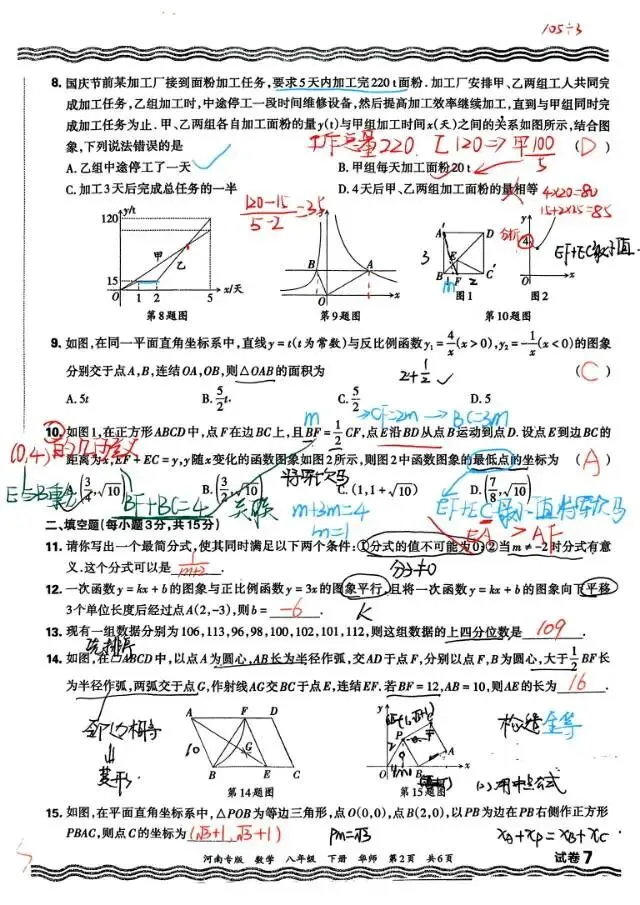 105÷3
8. 国庆节前某加工厂接到面粉加工任务,要求5天内加工完220 t面粉.加工厂安排甲、乙两组工人共同完
成加工任务,乙组加工时,中途停工一段时间维修设备,然后提高加工效率继续加工,直到与甲组同时完
成加工任务为止.甲、乙两组各自加工面粉的量y(t)与甲组加工时间x(天)之间的关系如图所示,结合图
象,下列说法错误的是 (D)
总量220 乙120⇒甲100/5
A.乙组中途停工了一天 B.甲组每天加工面粉20 t
C.加工3天后完成总任务的一半 D.4天后甲、乙两组加工面粉的量相等
120-15/5-2=35
4×20=80
15+2×35=85
y/t 120 15 O 1 2 5 x/天 甲 乙
第8题图
y B A O x
第9题图
A D E B F C 3 m 2
图1
y 4 O x
图2
第10题图
9. 如图,在同一平面直角坐标系中,直线y=t(t为常数)与反比例函数y₁=4/x(x>0),y₂=-1/x(x<0)的图象
分别交于点A,B,连结OA,OB,则△OAB的面积为 (C)
2+1/2
A.5t B.5/2 t. C.5/2 D.5
m →CF=2m→BC=3m
10. 如图1,在正方形ABCD中,点F在边BC上,且BF=1/2CF,点E沿BD从点B运动到点D.设点E到边BC的
(0,4)
距离为x,EF+EC=y,y随x变化的函数图象如图2所示,则图2中函数图象的最低点的坐标为 (A)
A.(3/4,√10) B.(3/2,√10) C.(1,1+√10) D.(7/8,√10)
BF+BC=4 关联
m+3m=4
m=1
将军饮马
EA AF
二、填空题(每小题3分,共15分)
11. 请你写出一个最简分式,使其同时满足以下两个条件:①分式的值不可能为0;②当m≠-2时分式有意
义.这个分式可以是 1/m+2.
分子≠0
12. 一次函数y=kx+b的图象与正比例函数y=3x的图象平行,且将一次函数y=kx+b的图象向下平移
3个单位长度后经过点A(2,-3),则b= -6. K
13. 现有一组数据分别为106,113,96,98,100,102,101,112,则这组数据的上四分位数是 109.
先排序
14. 如图,在▱ABCD中,以点A为圆心,AB长为半径作弧,交AD于点F,分别以点F,B为圆心,大于1/2BF长
为半径作弧,两弧交于点G,作射线AG交BC于点E,连结EF.若BF=12,AB=10,则AE的长为 16.
菱形
A F D G B E C 10
第14题图
y P C A O B x
第15题图
构造全等
15. 如图,在平面直角坐标系中,△POB为等边三角形,点O(0,0),点B(2,0),以PB为边在PB右侧作正方形
PBAC,则点C的坐标为 (√3+1,√3+1) PM=√3 xA+xP=xB+xC
河南专版 数学 八年级 下册 华师 第2页 共6页 试卷7